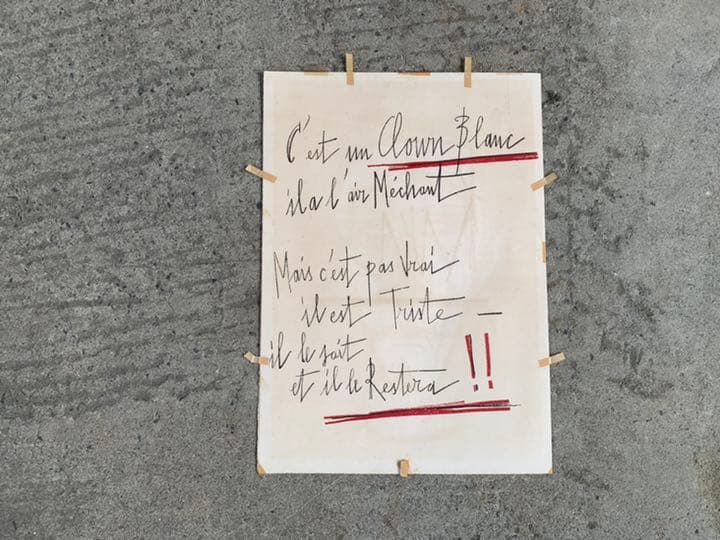 C'est un Clown Blanc
il a l'air Méchant
Mais c'est pas Vrai
il est Triste —
il le sait
et il le Restera !!